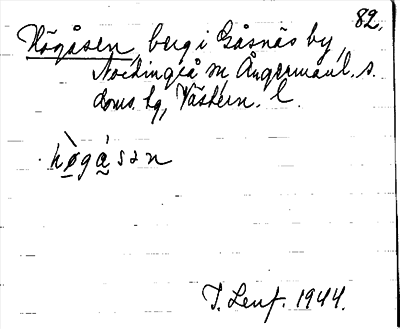 82.
Högåsen, berg i Gåsnäs by,
Nordingrå sn, Ångermanl. s.
doms. hg, Västern. l.
hø̀gásan
T. Lenf. 1944.